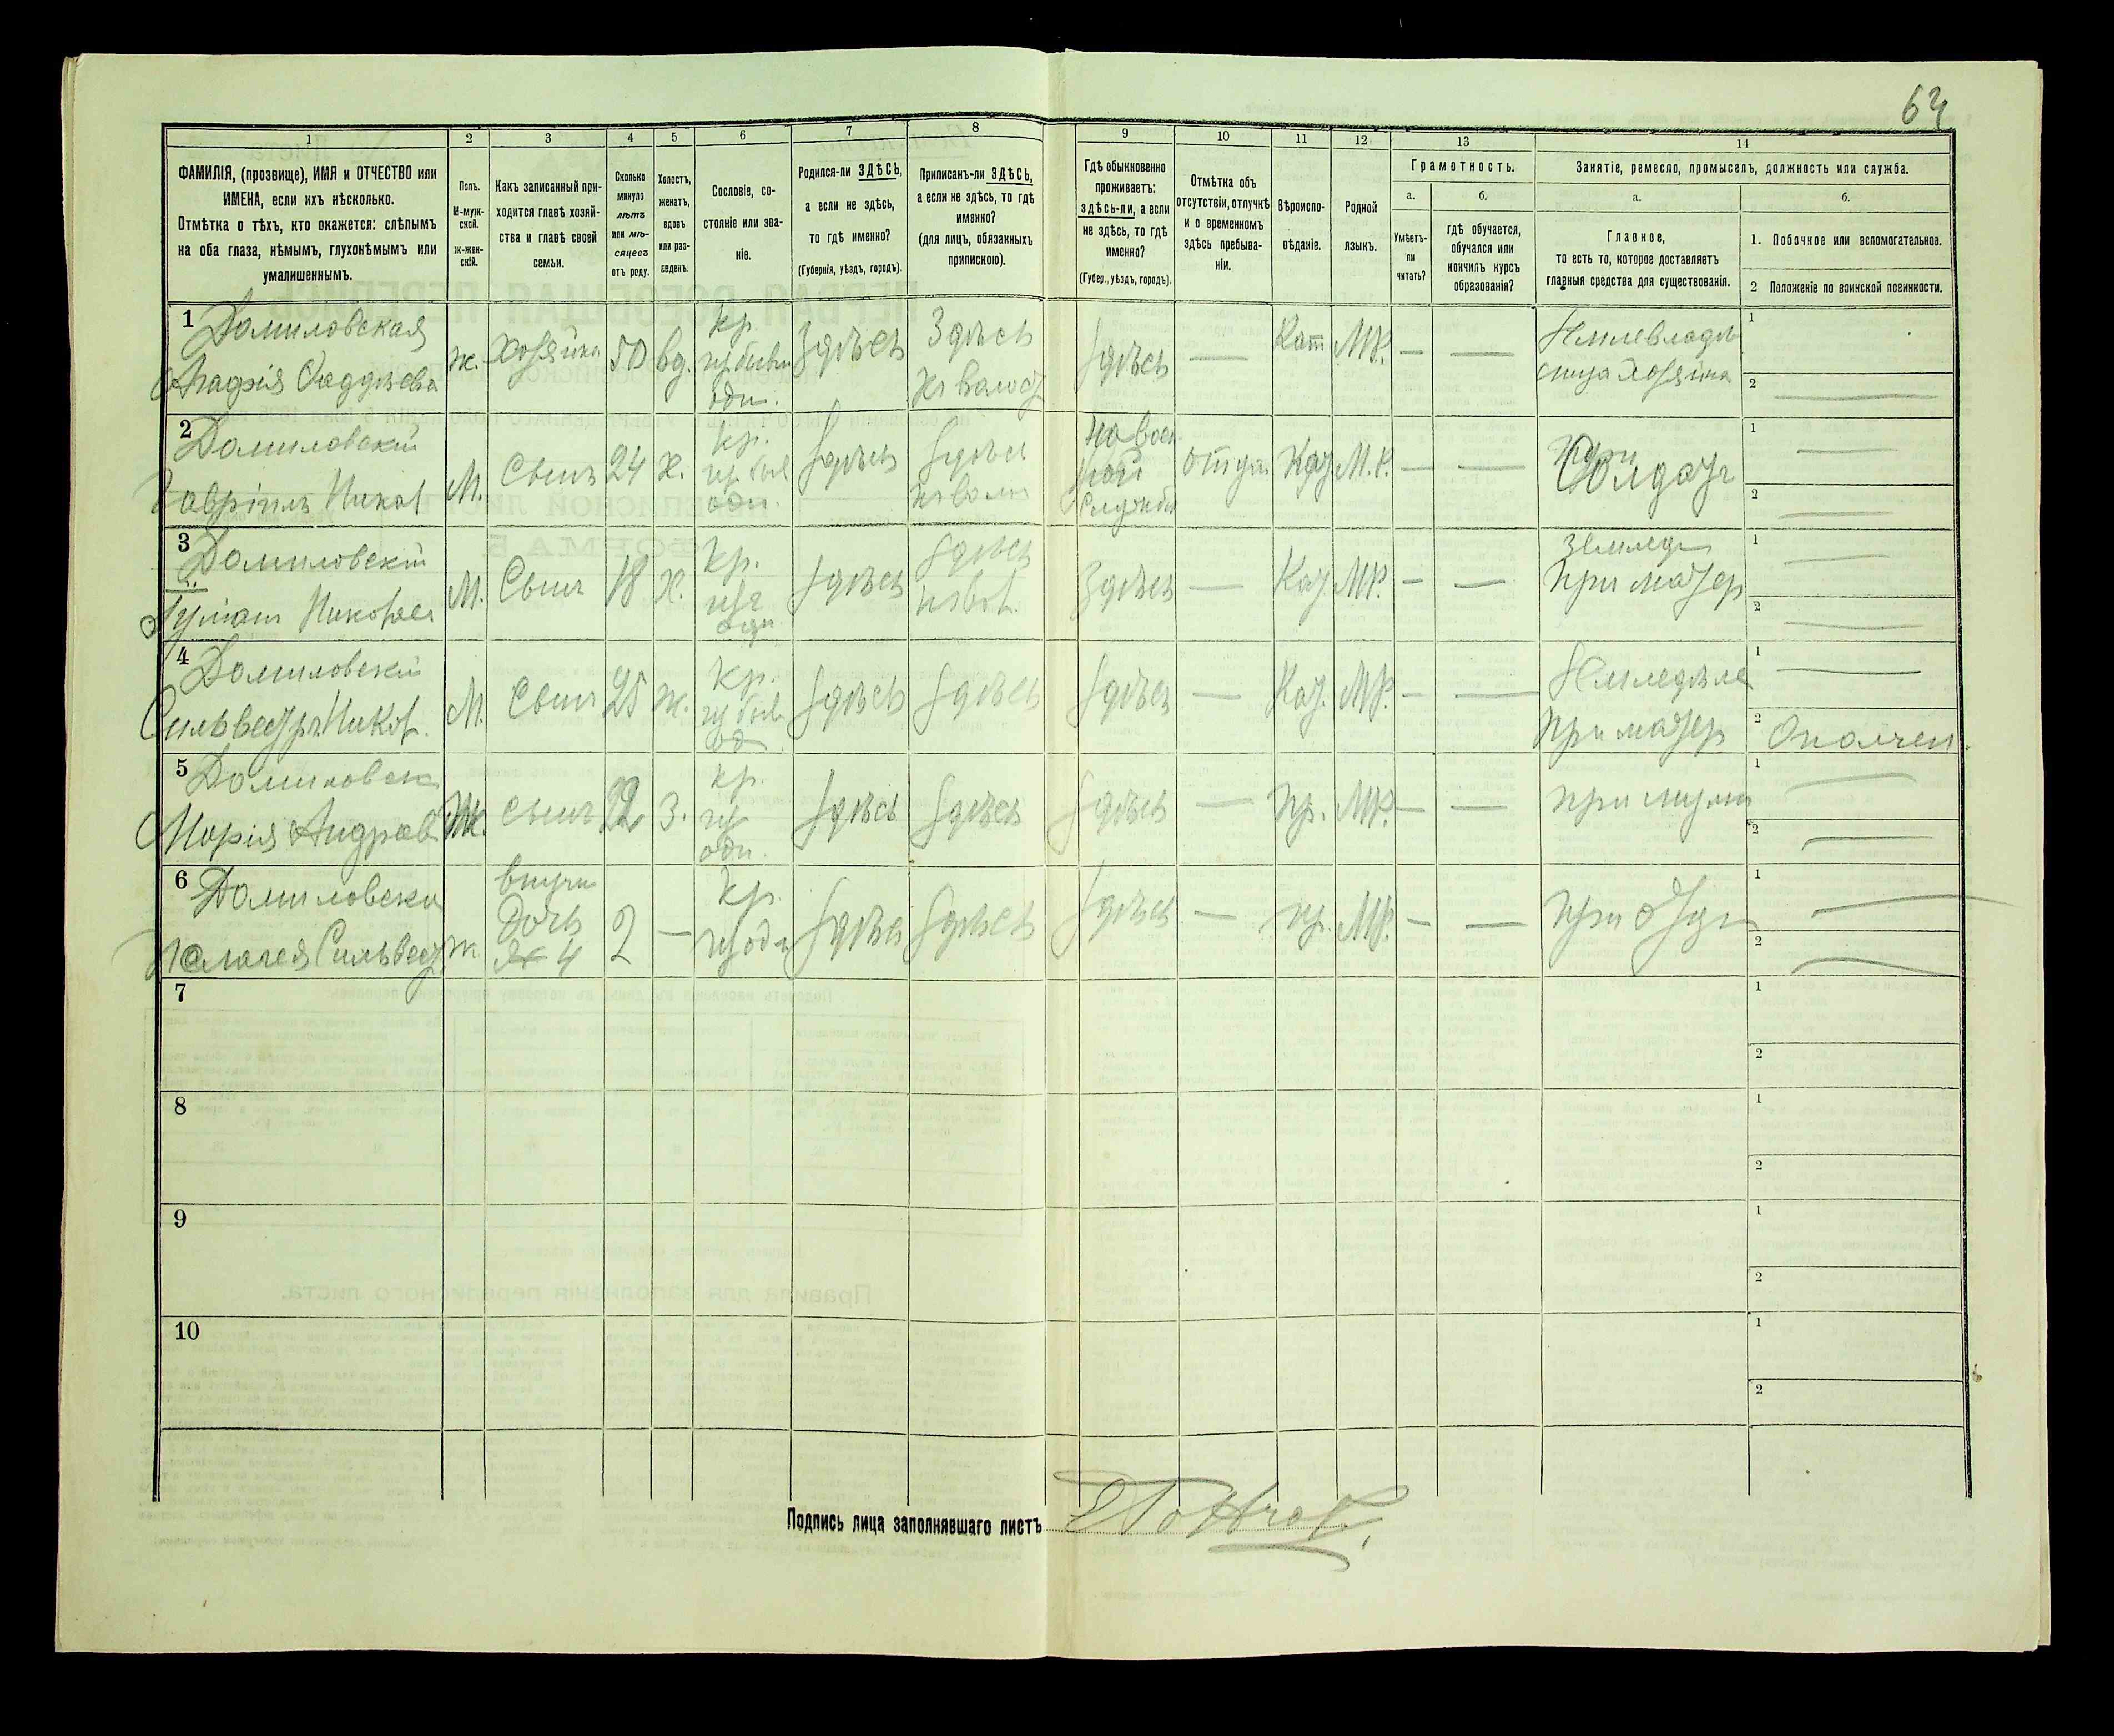 64
1
2
3
4
5
6
7
8
9
10
11
12
13
14
ФАМИЛІЯ, (прозвище), ИМЯ и ОТЧЕСТВО или
ИМЕНА, если ихъ нѣсколько.
Отмѣтка о тѣхъ, кто окажется: слѣпымъ
на оба глаза, нѣмымъ, глухонѣмымъ или
умалишеннымъ.
Полъ.
М-муж-
ской.
ж-жен-
скій.
Какъ записанный при-
ходится главѣ хозяй-
ства и главѣ своей
семьи.
Сколько
минуло
лѣтъ
или мѣ-
сяцевъ
отъ роду.
Холостъ,
женатъ,
вдовъ
или раз-
веденъ.
Сословіе, со-
стояніе или зва-
ніе.
Родился-ли ЗДѢСЬ,
а если не здѣсь,
то гдѣ именно?
(Губернія, уѣздъ, городъ).
Приписанъ-ли ЗДѢСЬ,
а если не здѣсь, то гдѣ
именно?
(для лицъ, обязанныхъ
припискою).
Гдѣ обыкновенно
проживаетъ:
здѣсь-ли, а если
не здѣсь, то гдѣ
именно?
(Губер., уѣздъ, городъ).
Отмѣтка объ
отсутствіи, отлучкѣ
и о временномъ
здѣсь пребыва-
ніи.
Вѣроиспо-
вѣданіе.
Родной
языкъ.
Грамотность.
а.
б.
Умѣетъ-
ли
читать?
гдѣ обучается,
обучался или
кончилъ курсъ
образованія?
Занятіе, ремесло, промыселъ, должность или служба.
а.
б.
Главное,
то есть то, которое доставляетъ
главныя средства для существованія.
1. Побочное или вспомогательное.
2 Положеніе по воинской повинности.
1
Домиловская
Фаддѣева
ж.
Хозяйка
50
вд.
кр.
Здѣсь
Здѣсь
Здѣсь
Кат
МР.
—
—
хозяйка
1
2
2
Домиловскій
Гавріилъ Никол
М.
Сынъ
24
х.
кр.
Здѣсь
Здѣсь
Службѣ
Каѳ
М.Р.
—
—
Солдатъ
1
2
3
Домиловскій
М.
Сынъ
18
х.
кр.
Здѣсь
Здѣсь
Здѣсь
—
Каѳ
МР.
—
—
землед
при матер
1
2
4
Домиловскій
Сильвестръ Никол.
М.
Сынъ
25
ж.
кр.
Здѣсь
Здѣсь
Здѣсь
—
Каѳ.
МР.
—
—
Земледѣле
при матер
1
2
Ополчен
5
Марія Андреев
Ж.
22
З.
кр.
Здѣсь
Здѣсь
Здѣсь
—
пр.
МР.
—
—
при мужи
1
2
6
Домиловска
Пелагея Сильвест
ж
дочь
4
2
—
кр.
Здѣсь
Здѣсь
Здѣсь
—
пр.
МР.
—
—
при отцѣ
1
2
7
1
2
8
1
2
9
1
2
10
1
2
Подпись лица заполнявшаго листъ